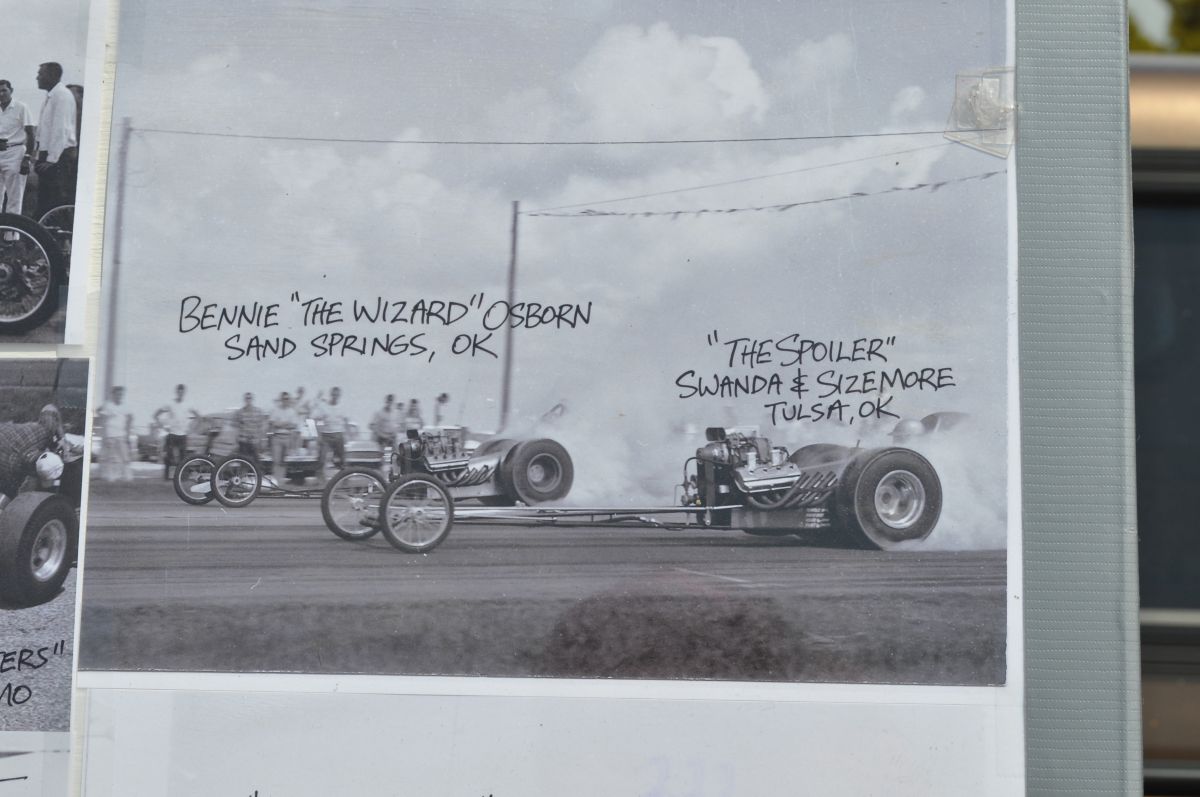 BENNIE "THE WIZARD" OSBORN
SAND SPRINGS, OK
"THE SPOILER"
SWANDA & SIZEMORE
TULSA, OK
ERS"
MO